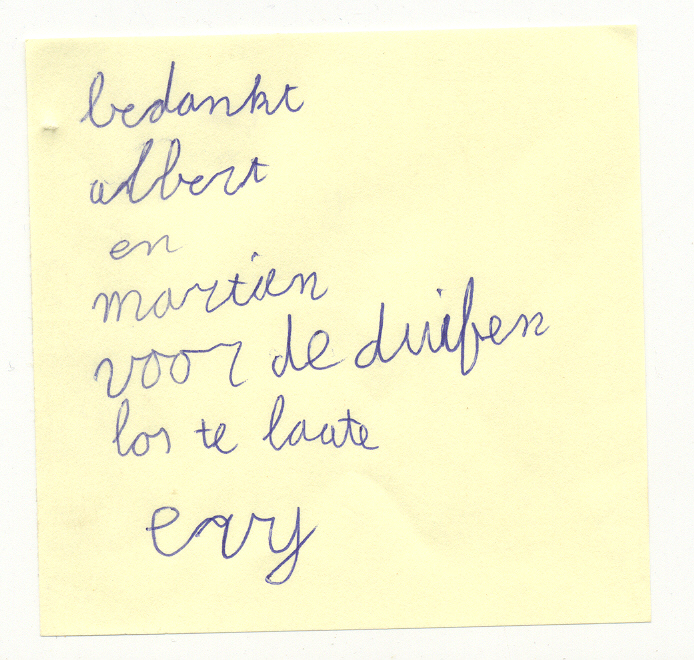 bedankt
albert
en
martien
voor de duifen
los te laate
evy